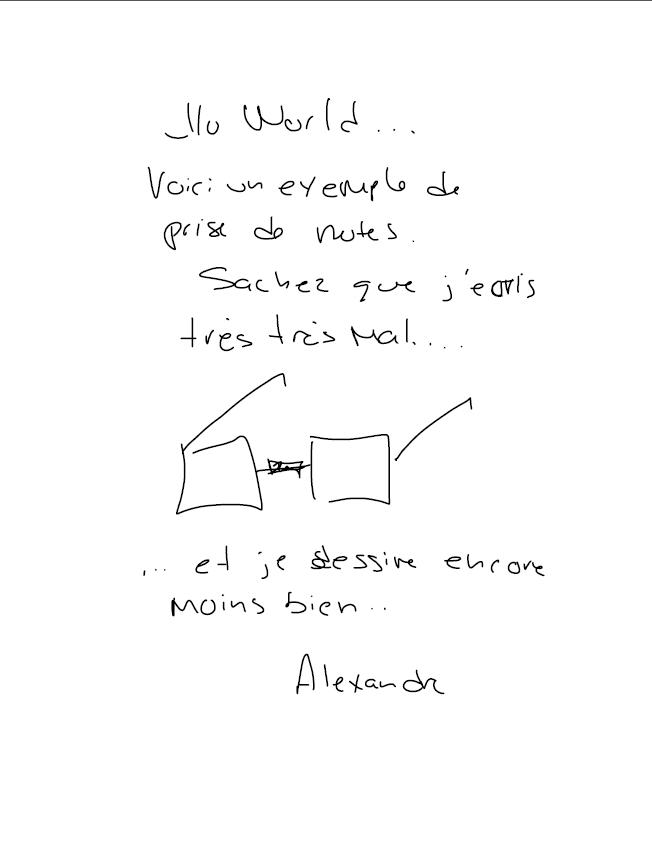 llo World...
Voici un exemple de
prise de notes.
Sachez que j'écris
très très mal....
... et je dessine encore
moins bien..
Alexandre